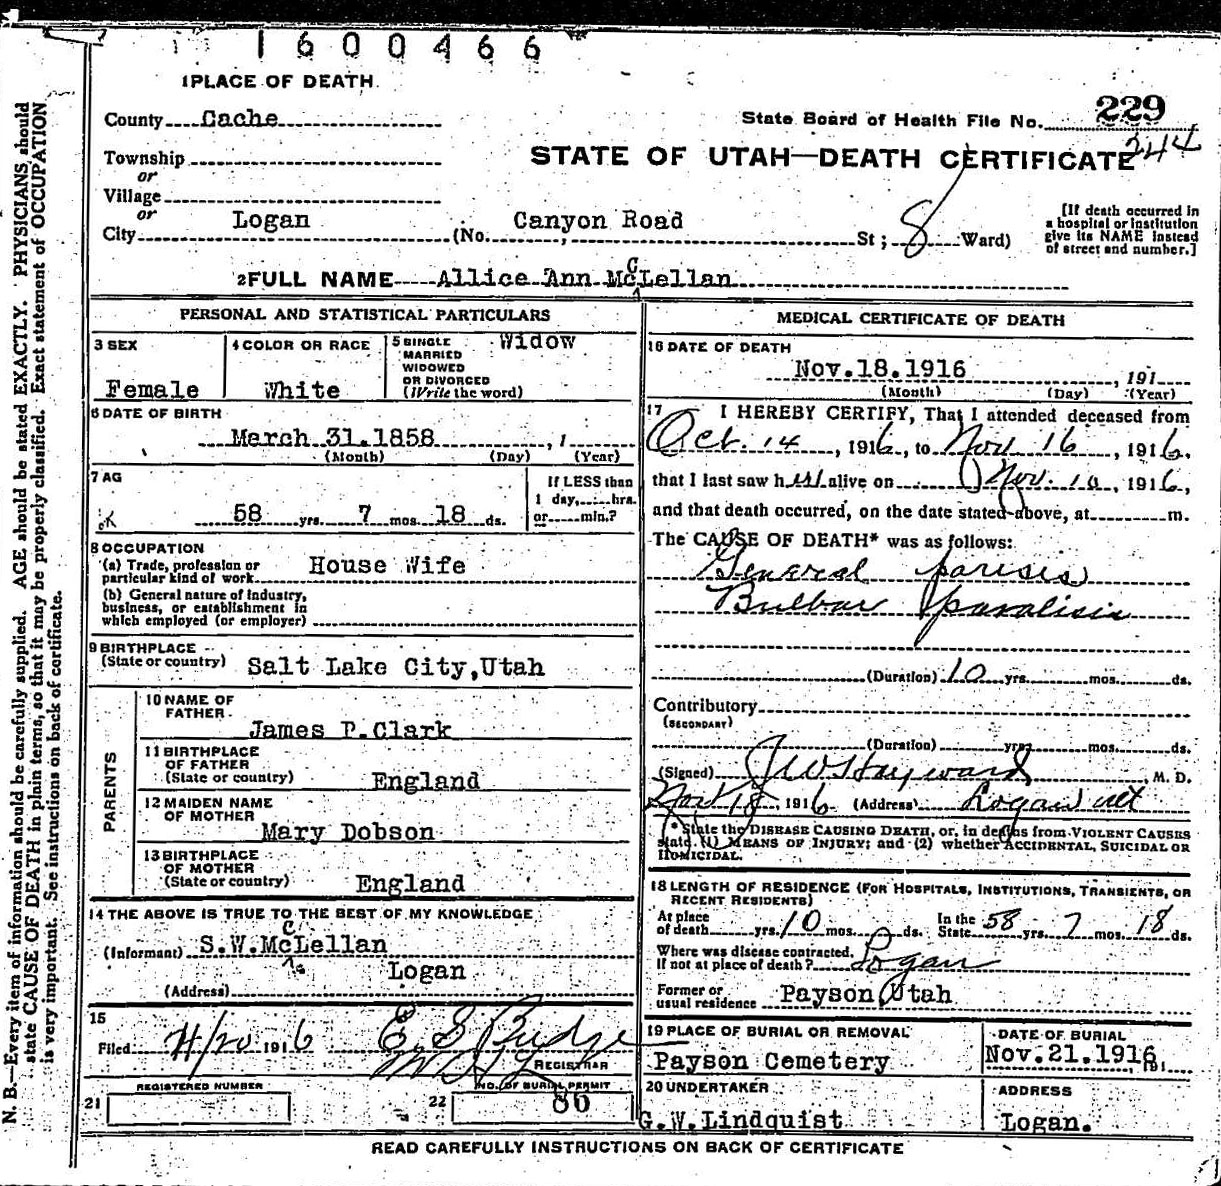 1600466
1 PLACE OF DEATH
County Cache
State Board of Health File No. 229
244
Township
or
Village
or
City Logan (No. Canyon Road St; 8 Ward)
STATE OF UTAH—DEATH CERTIFICATE
[If death occurred in
a hospital or institution
give its NAME instead
of street and number.]
2 FULL NAME Allice Ann McLellan
PERSONAL AND STATISTICAL PARTICULARS
3 SEX
Female
4 COLOR OR RACE
White
5 SINGLE
MARRIED
WIDOWED
OR DIVORCED
(Write the word)
Widow
6 DATE OF BIRTH
March 31.1858, 1
(Month) (Day) (Year)
7 AG
ok
58 yrs. 7 mos. 18 ds.
If LESS than
1 day, hrs.
or min.?
8 OCCUPATION
(a) Trade, profession or
particular kind of work House Wife
(b) General nature of industry,
business, or establishment in
which employed (or employer)
9 BIRTHPLACE
(State or country) Salt Lake City,Utah
PARENTS
10 NAME OF
FATHER
James P.Clark
11 BIRTHPLACE
OF FATHER
(State or country) England
12 MAIDEN NAME
OF MOTHER
Mary Dobson
13 BIRTHPLACE
OF MOTHER
(State or country) England
14 THE ABOVE IS TRUE TO THE BEST OF MY KNOWLEDGE
(Informant) S.W.McLellan
Logan
(Address)
15
Filed 11/20 1916 E S Budge
REGISTRAR
REGISTERED NUMBER
21
NO. OF BURIAL PERMIT
22 86
MEDICAL CERTIFICATE OF DEATH
16 DATE OF DEATH
Nov.18.1916, 191
(Month) (Day) (Year)
17 I HEREBY CERTIFY, That I attended deceased from
Oct. 14, 1916, to Nov 16, 1916.
that I last saw her alive on Nov. 10, 1916,
and that death occurred, on the date stated above, at m.
The CAUSE OF DEATH* was as follows:
General parisis
Bulbar paralisis
(Duration) 10 yrs. mos. ds.
Contributory
(SECONDARY)
(Duration) yrs. mos. ds.
(Signed) J W Hayward, M. D.
Nov 18, 1916 (Address) Logan ut
*State the DISEASE CAUSING DEATH, or, in deaths from VIOLENT CAUSES
state (1) MEANS OF INJURY; and (2) whether ACCIDENTAL, SUICIDAL OR
HOMICIDAL.
18 LENGTH OF RESIDENCE (FOR HOSPITALS, INSTITUTIONS, TRANSIENTS, OR
RECENT RESIDENTS)
At place
of death yrs. 10 mos. ds. In the
State 58 yrs. 7 mos. 18 ds.
Where was disease contracted,
If not at place of death? Logan
Former or
usual residence Payson,Utah
19 PLACE OF BURIAL OR REMOVAL
Payson Cemetery
DATE OF BURIAL
Nov.21.1916, 191
20 UNDERTAKER
G.W.Lindquist
ADDRESS
Logan.
READ CAREFULLY INSTRUCTIONS ON BACK OF CERTIFICATE
N. B.—Every item of information should be carefully supplied. AGE should be stated EXACTLY. PHYSICIANS should
state CAUSE OF DEATH in plain terms, so that it may be properly classified. Exact statement of OCCUPATION
is very important. See instructions on back of certificate.